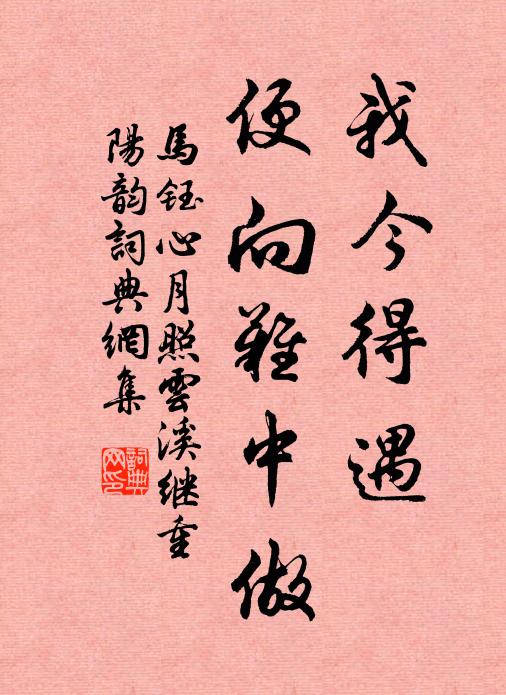 我今得遇
便向难中做
馬鈺心月照雲溪继重
陽韵詞典網集
詞典网印